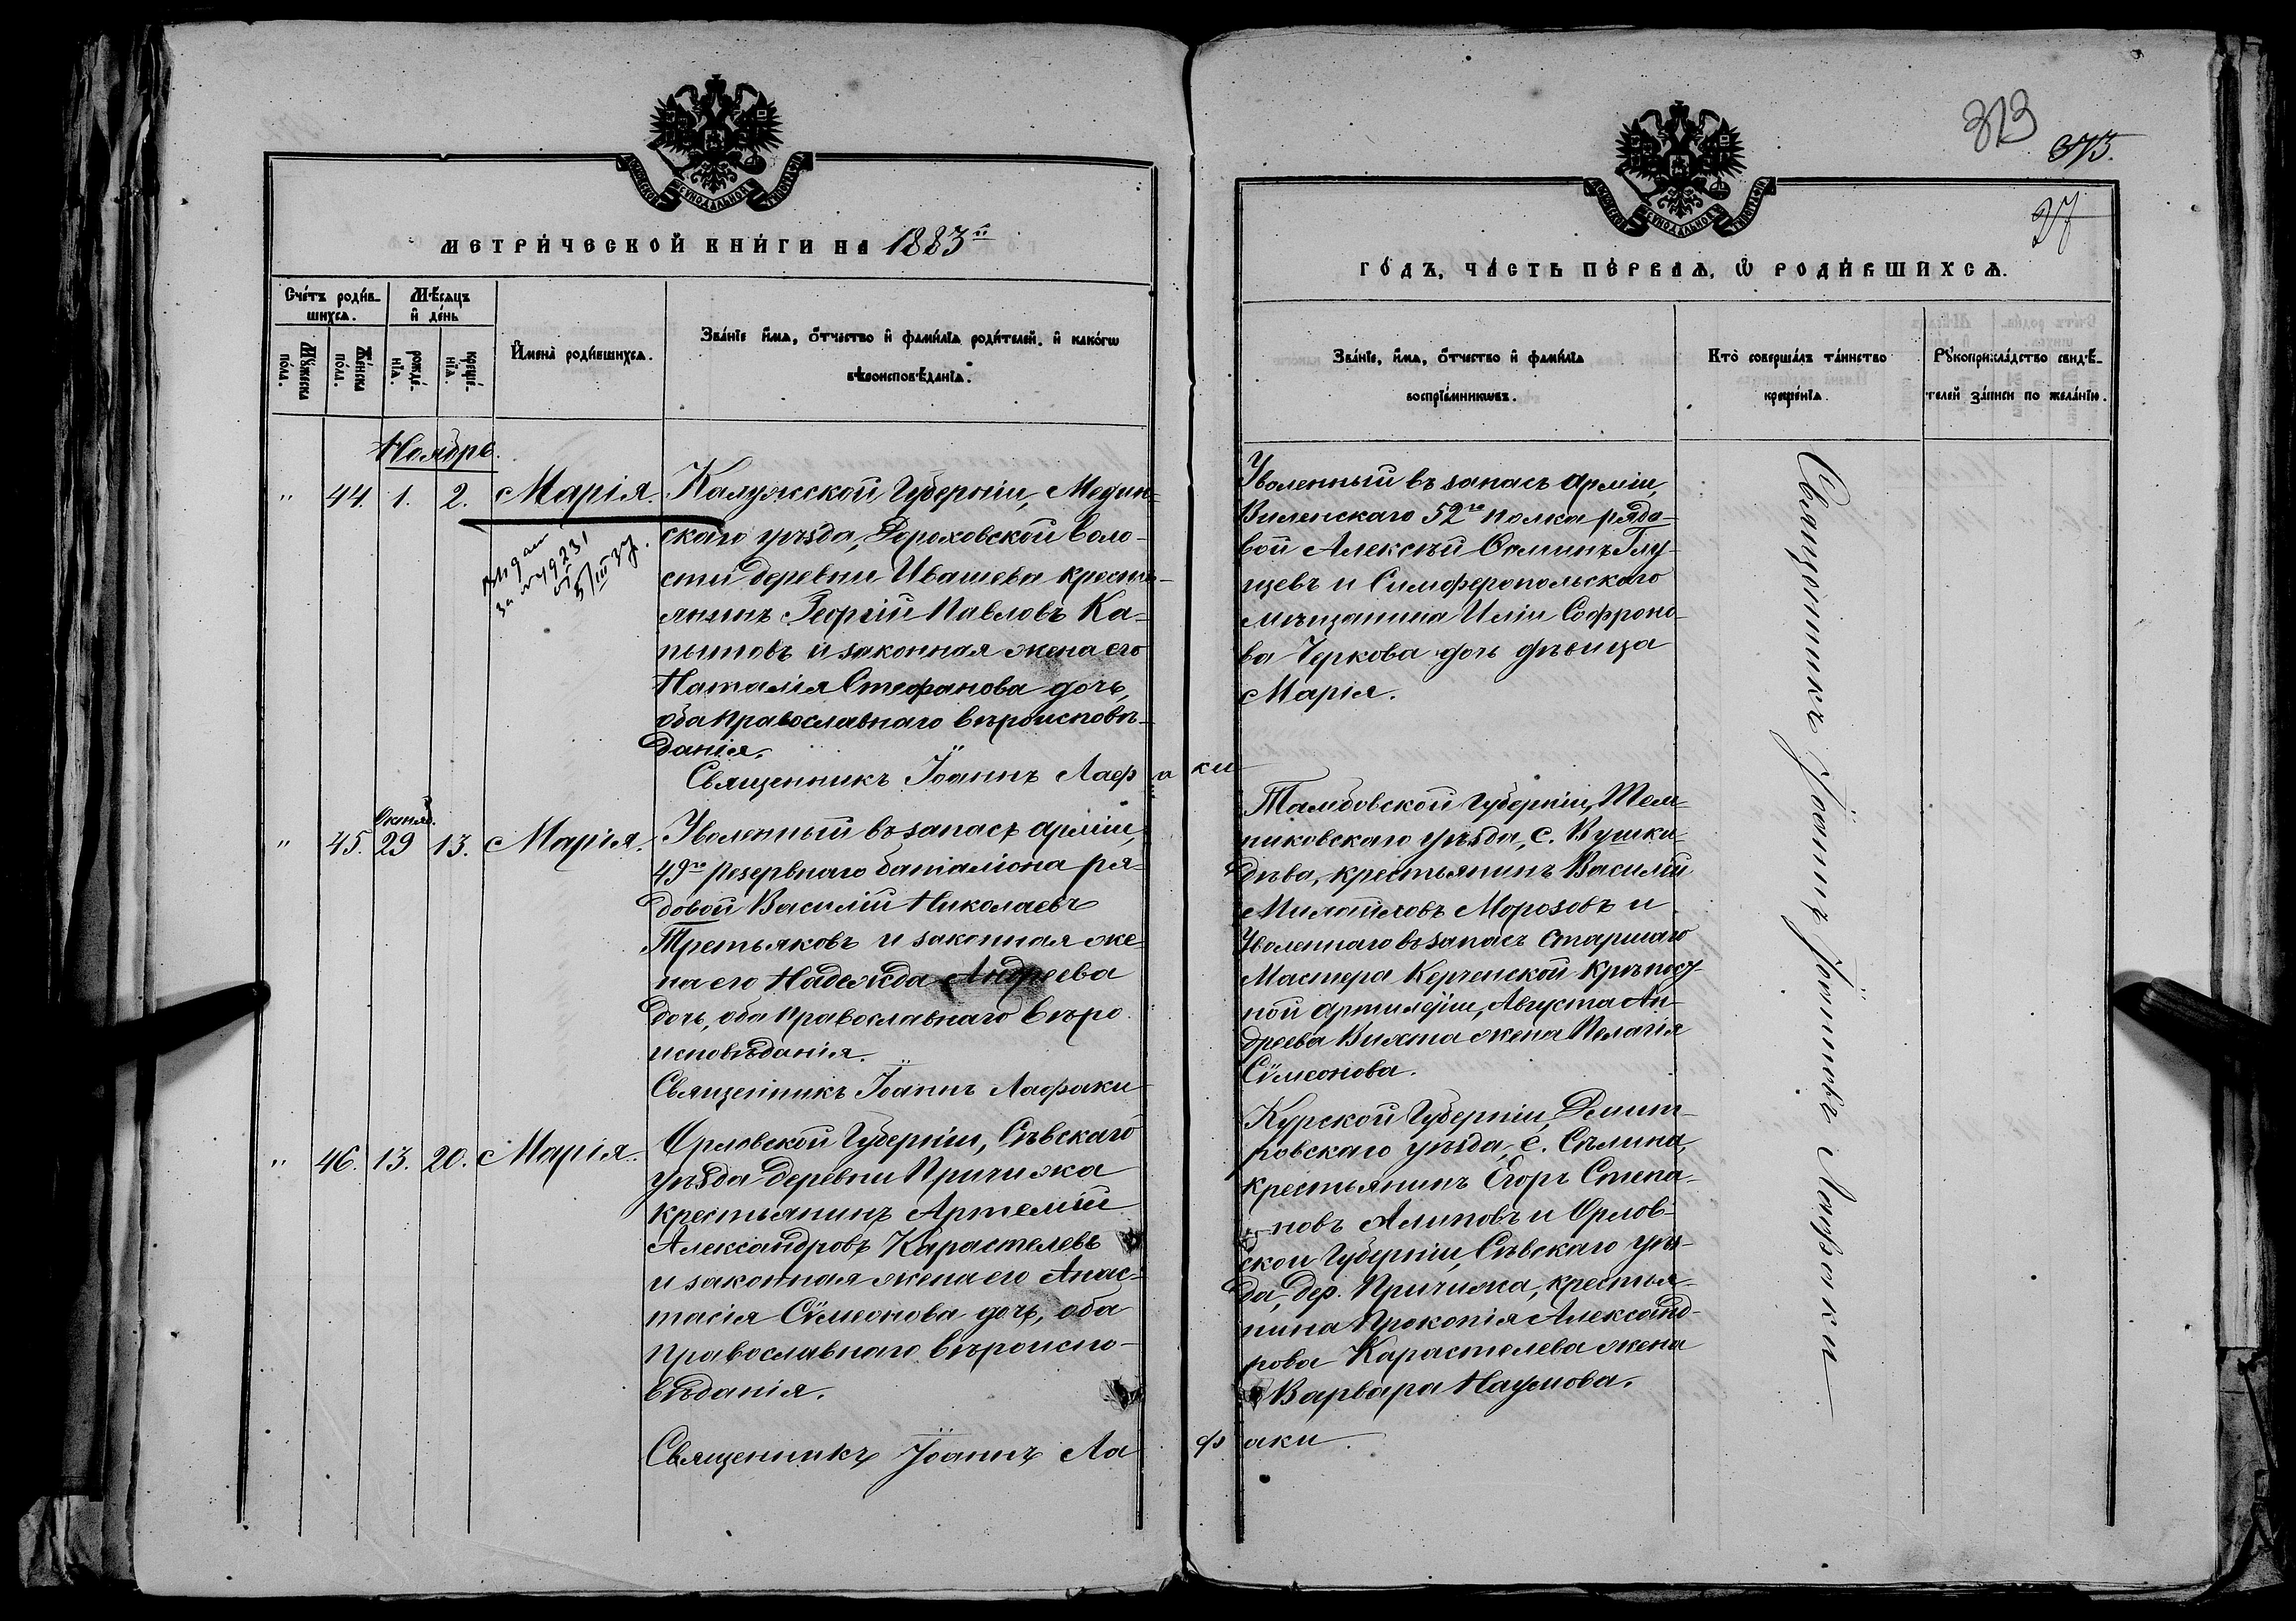 МОСКОВСКОЙ СѴНОДАЛЬНОЙ ТИПОГРАФІИ
МЕТРИ́ЧЕСКОЙ КНИ́ГИ НА 1883й
Сче́тъ роди́в-
шихсѧ.
Мѣ́сѧцъ
и҆ де́нь
Мꙋ́жеска
по́ла.
Же́нска
по́ла.
рожде́-
нїѧ.
креще́-
нїѧ.
И҆мена̀ роди́вшихсѧ.
Зва́нїе и҆́мѧ, о҆́тчество и҆ фами́лїѧ роди́телей, и҆ како́гѡ
вѣроисповѣ́данїѧ.
Ноябрь.
" 44. 1. 2. Марія.
Калужской Губерніи, Медын-
скаго уѣзда, Дороховской воло-
сти деревни Ивашева кресть-
янинъ Георгій Павловъ Ка-
пытовъ и законная жена его
Наталія Стефанова дочь,
оба православнаго вѣроисповѣ-
данія.
Священникъ Іоаннъ Лафаки
Выдан
за № 9231
5/III 37.
Октяб.
" 45. 29 13. Марія.
Уволенный въ запасъ арміи,
49го резервнаго баталіона ря-
довой Василій Николаевъ
Третьяковъ и законная же-
на его Надежда Андреева
дочь, оба православнаго вѣро
исповѣданія.
Священникъ Іоаннъ Лафаки
" 46. 13. 20. Марія.
Орловской Губерніи, Сѣвскаго
уѣзда деревни Причижа
крестьянинъ Артемій
Александровъ Карастелевъ
и законная жена его Анас-
тасія Сѵмеонова дочь, оба
православнаго вѣроиспо-
вѣданія.
Священникъ Іоаннъ Лафаки.
313
373.
27
МОСКОВСКОЙ СѴНОДАЛЬНОЙ ТИПОГРАФІИ
ГО́ДЪ, ЧА́СТЬ ПЕ́РВАѦ, Ѡ҆ РОДИ́ВШИХСѦ.
Зва́нїе, и҆́мѧ, о҆́тчество и҆ фами́лїѧ
воспрїе́мникѡвъ.
Кто̀ соверша́лъ та́инство
креще́нїѧ.
Рꙋкоприкла́дство свидѣ́-
телей за́писи по жела́нїю.
Уволенный въ запасъ арміи,
Виленскаго 52го полка рядо-
вой Алексѣй Ѳоминъ Глу-
щевъ и Симферопольского
мѣщанина Иліи Софроно-
ва Черкова дочь дѣвица
Марія.
Тамбовской Губерніи, Тем-
никовскаго уѣзда, с. Кушки-
дѣва, крестьянинъ Василій
Михайловъ Морозовъ и
уволеннаго въ запасъ старшаго
Мастера Керченской Крѣпост-
ной артилеріи, Августа Ан-
дреева Вихта жена Пелагія
Сѵмеонова.
Курской Губерніи, Демит-
ровскаго уѣзда, с. Сѣлина,
крестьянинъ Егоръ Степа-
новъ Алиповъ и Орлов-
ской Губерніи, Сѣвскаго уѣз-
да, дер. Причижа, крестья-
нина Прокопія Александ-
рова Карастелева жена
Варвара Наумова.
Священникъ Іоаннъ Іоанновъ Лафаки